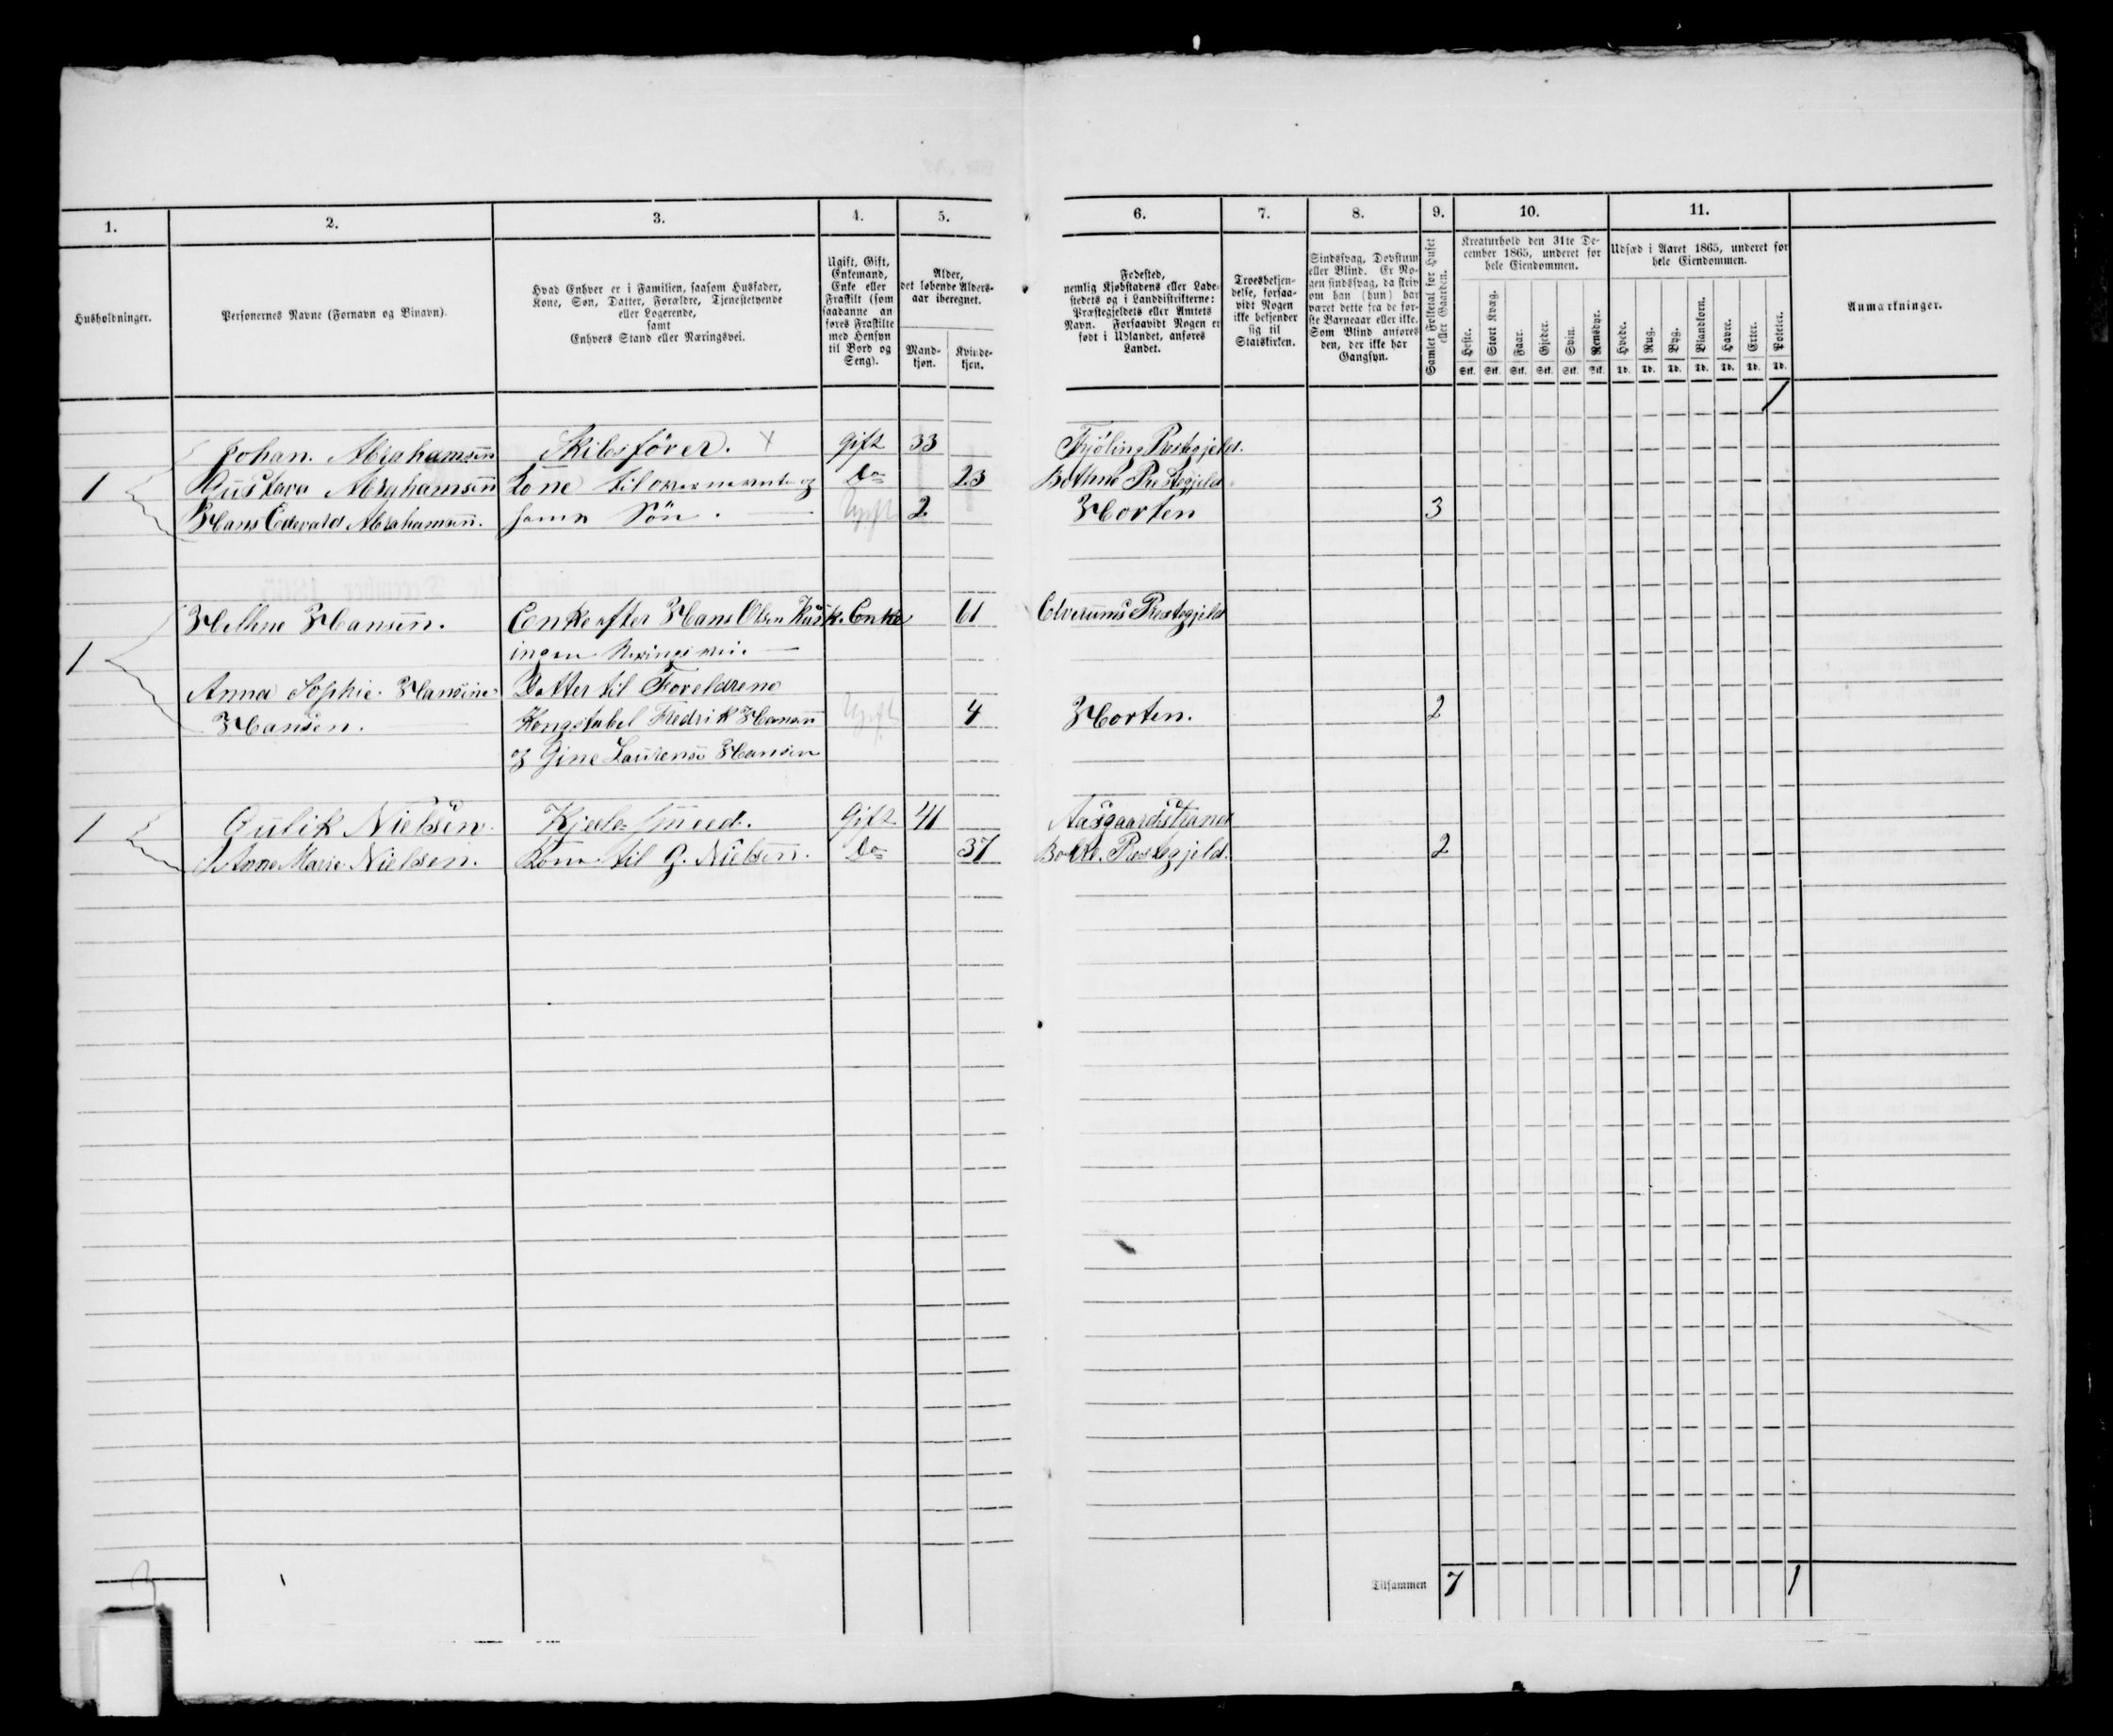 1. 2. 3. 4. 5. 6. 7. 8. 9. 10. 11.
Husholdninger.
Personernes Navne (Fornavn og Binavn).
Hvad Enhver er i Familien, saasom Husfader,
Kone, Søn, Datter, Forældre, Tjenestetyende
eller Logerende,
samt
Enhvers Stand eller Næringsvei.
Ugift, Gift,
Enkemand,
Enke eller
Fraskilt (som
saadanne an
føres Fraskilte
med Hensyn
til Bord og
Seng).
Alder,
det løbende Alders-
aar iberegnet.
Mand-
kjøn.
Kvinde-
kjøn.
Fødested,
nemlig Kjøbstadens eller Lade-
stedets og i Landdistrikterne:
Præstegjeldets eller Amtets
Navn. Forsaavidt Nogen er
født i Udlandet, anføres
Landet.
Troesbekjen-
delse, forsaa-
vidt Nogen
ikke bekjender
sig til
Statskirken.
Sindssvag, Døvstum
eller Blind. Er No-
gen sindssvag, da skriv
om han (hun) har
været dette fra de før-
ste Barneaar eller ikke.
Som Blind anføres
den, der ikke har
Gangsyn.
Samlet Folketal for Huset
eller Gaarden.
Kreaturhold den 31te De-
cember 1865, underet for
hele Eiendommen.
Heste. Stort Kvæg. Faar. Gjeder. Svin. Rensdyr.
Stk. Stk. Stk. Stk. Stk. Stk.
Udsæd i Aaret 1865, underet for
hele Eiendommen.
Hvede. Rug. Byg. Blandkorn. Havre. Erter. Poteter.
Td. Td. Td. Td. Td. Td. Td.
Anmærkninger.
1
Johan. Abrahamsen Skibsfører. x Gift 33 Tjøling Prestegjeld.
1 Gustava Abrahamsen Kone til ovennevnte og Do 23 Bothne Prestegjeld
Hans Edevald Abrahamsen. Søn. Ugift 2 Horten 3
1 Hellene Hansen. Enke efter Hans Olsen Enke 61 Elverums Prestegjeld
ingen Neringsvei.
Anna Sophie Hansine Datter til Foreldrene
Hansen. Kongstabel Fredrik Hansen Ugift 4 Horten. 2
og Gine Laurense Hansen
1 Gulik Nielsen. Kjedelsmeed. Gift 41 Aasgaardstrand
Anne Marie Nielsen. Kone til G. Nielsen. Do 37 Prestegjeld. 2
Tilsammen 7 1